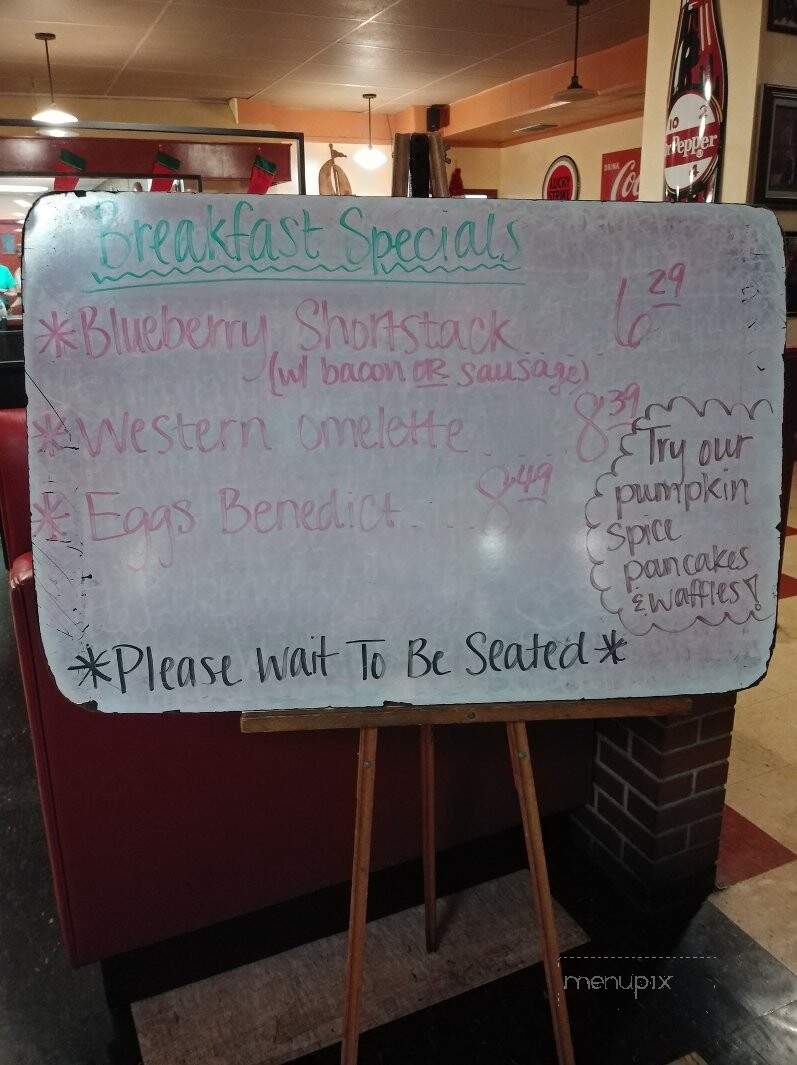 Breakfast Specials
*Blueberry Shortstack 6 29
(w/ bacon OR sausage)
*Western omelette.. 8 39
*Eggs Benedict.... 8 49
Try our
pumpkin
spice
pancakes
& waffles!
*Please Wait To Be Seated*
10 2
Dr Pepper
LUCKY
STRIKE
DRINK
Coca
menupix